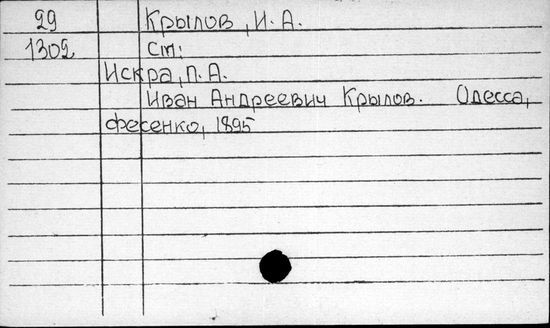 29 Крылов, И. А.
1302 См:
Искра, П. А.
Иван Андреевич Крылов. Одесса,
Фесенко, 1895